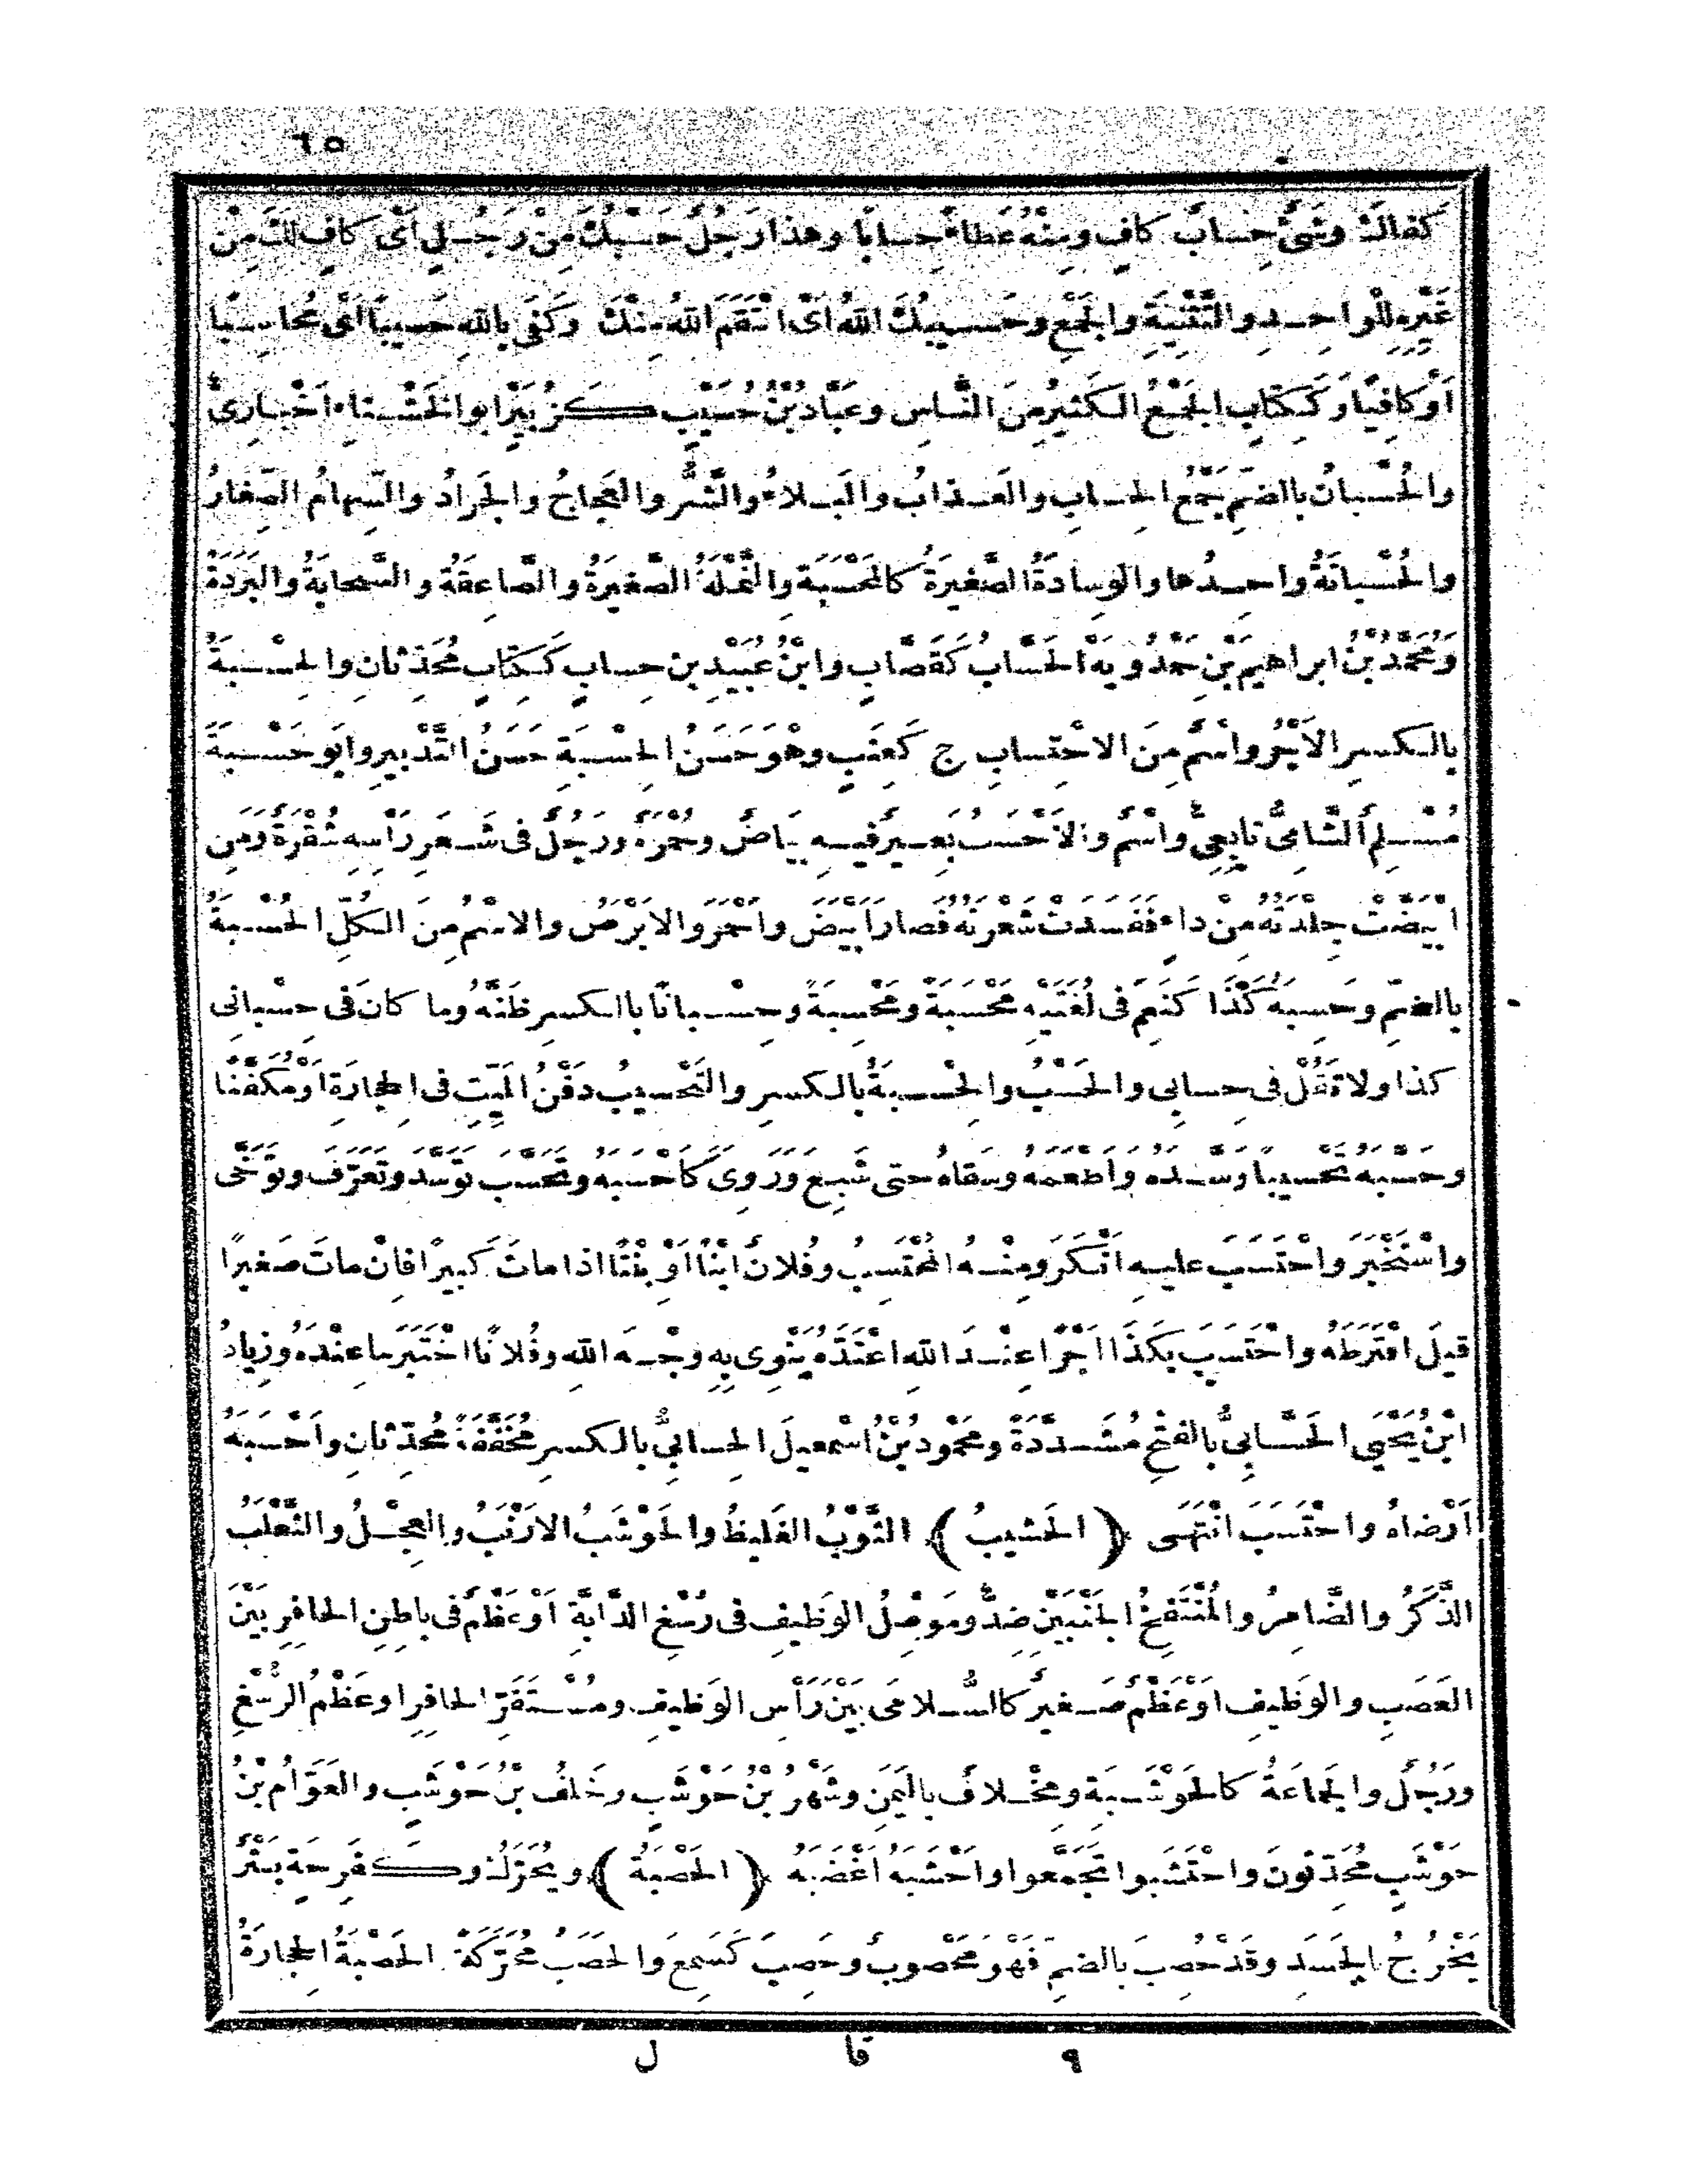 ٦٥
كَفَاكَ وشَىْءٌ حِسابٌ كافٍ ومِنْهُ عَطاءً حِسابًا وهذا رَجُلٌ حَسْبُكَ مِنْ رَجُلٍ اَىْ كافٍ لَكَ مِنْ
غَيْرِهِ للْواحِدِ والتَّثْنِيَةِ والجَمْعِ وحَسِيبُكَ اللهُ اَىْ انْتَقَمَ اللهُ مِنْكَ وكَفَى باللهِ حَسِيبًا اَىْ مُحَاسِبًا
اَوْ كافِيًا وكَكِتَابٍ الجَمْعُ الكَثيرُ مِنَ النَّاسِ وعَبَّادُ بْنُ حُسَيْبٍ كَزُبَيْرٍ ابو الخَشْناءِ اَخْبارِىٌّ
والحُسْبانُ بالضمِّ جَمْعُ الحِسابِ والعَذابُ والبَلاءُ والشَّرُّ والعَجاجُ والجَرادُ والسِّهامُ الصِّغارُ
والحُسْبانَةُ واحِدُها والوِسادَةُ الصَّغيرَةُ كالمَحْسَبَةِ والنَّمْلَةُ الصَّغيرَةُ والصَّاعِقَةُ والسَّحابَةُ والبَرَدَةُ
ومُحَمَّدُ بْنُ ابراهيمَ بْنِ حَمْدُويَهْ الحَسَّابُ كَقَصَّابٍ وابْنُ عُبَيْدِ بنِ حِسابٍ كَكِتابٍ مُحَدِّثانِ والحِسْبَةُ
بالكسرِ الاَجْرُ واسْمٌ مِنَ الاحْتِسابِ ج كَعِنَبٍ وهْوَ حَسَنُ الحِسْبَةِ حَسَنُ التَّدْبيرِ وابو حَسْبَةَ
مُسْلِمٌ الشَّامِىُّ تابِعِىٌّ واسْمٌ والاَحْسَبُ بَعِيرٌ فيهِ بَيَاضٌ وحُمْرَةٌ ورَجُلٌ فى شَعَرِ رَأْسِهِ شُقْرَةٌ ومَنِ
ابْيَضَّتْ جِلْدَتُهُ مِنْ داءٍ فَفَسَدَتْ شَعْرَتُهُ فَصارَ اَبْيَضَ واَحْمَرَ والاَبْرَصُ والاسْمُ مِنَ الكُلِّ الحُسْبَةُ
بالضمِّ وحَسِبَهُ كَذَا كَنَعِمَ فى لُغَتَيْهِ مَحْسَبَةً ومَحْسِبَةً وحِسْبانًا بالكسرِ ظَنَّهُ وما كانَ فى حِسْبانِى
كذا ولا تَقُلْ فى حِسابِى والحَسْبُ والحِسْبَةُ بالكسرِ والتَّحْسيبُ دَفْنُ المَيِّتِ فى الحِجارَةِ اَوْ مُكَفَّنًا
وحَسَّبَهُ تَحْسيبًا وَسَّدَهُ واَطْعَمَهُ وسَقاهُ حتى شَبِعَ ورَوِىَ كَاَحْسَبَهُ وتَحَسَّبَ تَوَسَّدَ وتَعَرَّفَ وتَوَخَّى
واسْتَخْبَرَ واحْتَسَبَ عليهِ اَنْكَرَ ومِنْهُ المُحْتَسِبُ وفُلانٌ ابْنًا اَوْ بِنْتًا اذا ماتَ كَبيرًا فاِنْ ماتَ صَغيرًا
قيلَ افْتَرَطَهُ واحْتَسَبَ بكَذَا اَجْرًا عِنْدَ اللهِ اعْتَدَّهُ يَنْوِى بِهِ وجْهَ اللهِ وفُلانًا اخْتَبَرَ ما عِنْدَهُ وزِيادُ
ابْنُ يَحْيَى الحَسَّابِىُّ بالفتْحِ مُشَدَّدَةً ومَحْمُودُ بْنُ اسْمعيلَ الحِسابِىُّ بالكسرِ مُخَفَّفَةً مُحَدِّثانِ واَحْسَبَهُ
اَرْضاهُ واحْتَسَبَ انْتَهَى ﴿ الحَشيبُ ﴾ الثَّوْبُ الغَليظُ والحَوْشَبُ الاَرْنَبُ والعِجْلُ والثَّعْلَبُ
الذَّكَرُ والضَّامِرُ والمُنْتَفِخُ الجَنْبَيْنِ ضِدٌّ ومَوْصِلُ الوَظيفِ فى رُسْغِ الدَّابَّةِ اَوْ عَظْمٌ فى باطِنِ الحافِرِ بَيْنَ
العَصَبِ والوَظيفِ اَوْ عَظْمٌ صَغيرٌ كالسُّلامَى بَيْنَ رَأْسِ الوَظيفِ ومُسْتَقَرِّ الحافِرِ او عَظْمُ الرُّسْغِ
ورَجُلٌ والجَماعَةُ كالحَوْشَبَةِ ومِخْلافٌ باليَمَنِ وشَهْرُ بْنُ حَوْشَبٍ وخَلَفُ بْنُ حَوْشَبٍ والعَوَّامُ بْنُ
حَوْشَبٍ مُحَدِّثونَ واحْتَشَبوا تَجَمَّعوا واَحْشَبَهُ اَغْضَبَهُ ﴿ الحَصْبَةُ ﴾ ويُحَرَّكُ وكَفَرِحَةٍ بَثْرٌ
يَخْرُجُ بالجَسَدِ وقَدْ حُصِبَ بالضمِّ فَهْوَ مَحْصوبٌ وحَصِبَ كَسَمِعَ والحَصَبُ مُحَرَّكَةً الحَصْبَةُ الحِجارَةُ
٩ قا ل